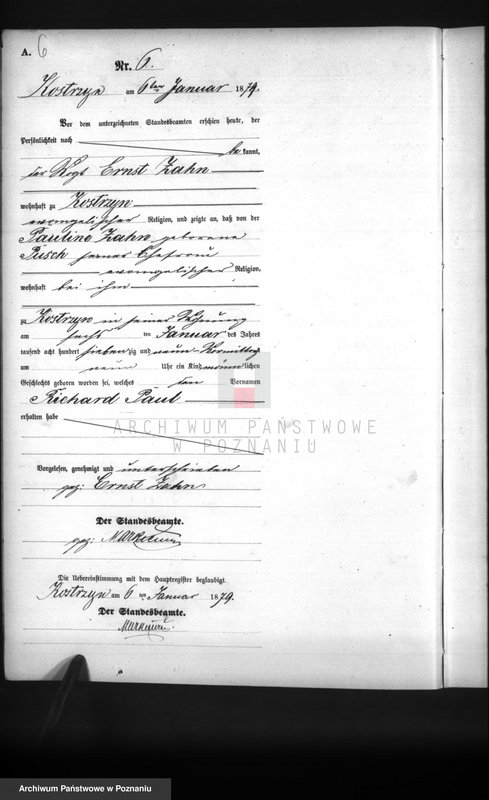 A. 6
Nr. 6.
Kostrzyn am 6ten Januar 1879.
Vor dem unterzeichneten Standesbeamten erschien heute, der
Persönlichkeit nach
be kannt,
der Vogt Ernst Zahn
wohnhaft zu Kostrzyn
evangelischer Religion, und zeigte an, daß von der
Pauline Zahn geborene
Püsch seiner Ehefrau
evangelischer Religion,
wohnhaft bei ihm
zu Kostrzyn in seiner Wohnung
am sechs ten Januar des Jahres
tausend acht hundert sieben zig und neun Vormittags
um neun Uhr ein Kind männ lichen
Geschlechts geboren worden sei, welches den Vornamen
Richard Paul
erhalten habe
ARCHIWUM PAŃSTWOWE
W POZNANIU
Vorgelesen, genehmigt und unterschrieben
gez: Ernst Zahn
Der Standesbeamte.
gez:
Die Uebereinstimmung mit dem Hauptregister beglaubigt.
Kostrzyn am 6 ten Januar 1879.
Der Standesbeamte.
Archiwum Państwowe w Poznaniu